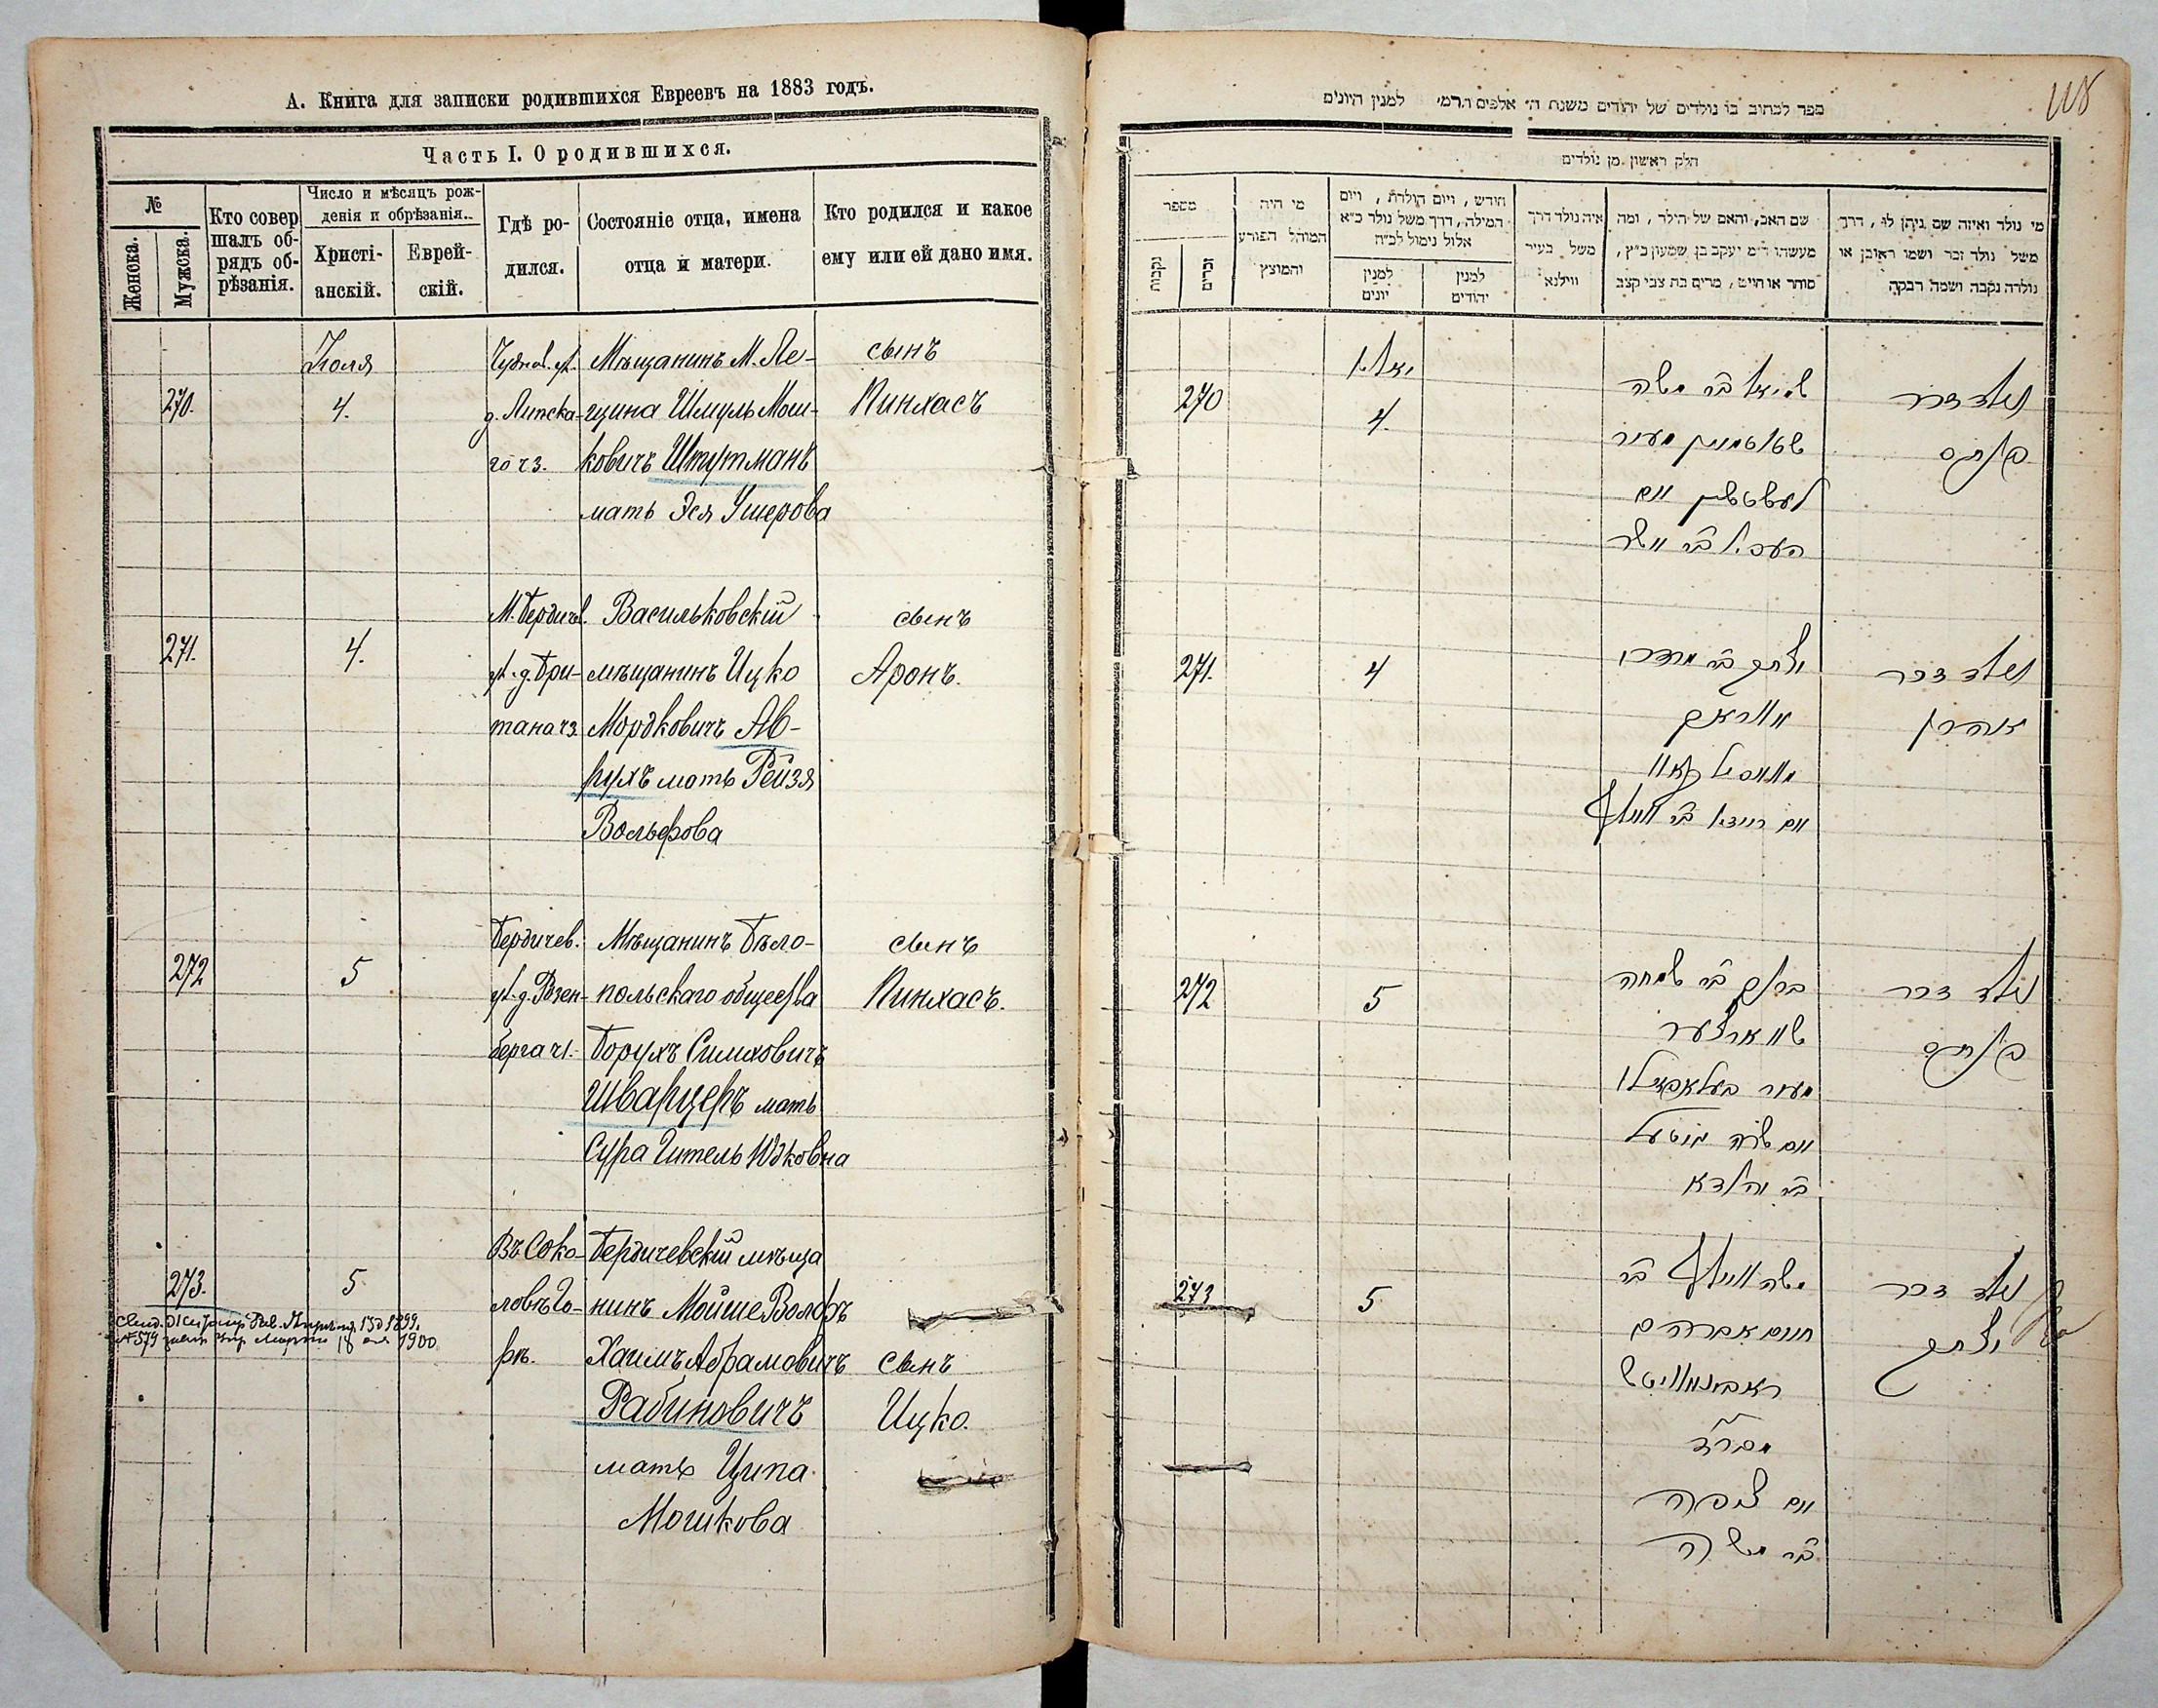 А. Книга для записки родившихся Евреевъ на 1883 годъ.
Часть I. О родившихся.
№
Женска.
Мужска.
Кто совер
шалъ об-
рядъ об-
рѣзанія.
Число и мѣсяцъ рож-
денія и обрѣзанія.
Христі-
анскій.
Еврей-
скій.
Гдѣ ро-
дился.
Состояніе отца, имена
отца и матери.
Кто родился и какое
ему или ей дано имя.
Іюля
270.
4.
Чуднов. ул.
д. Липска-
го ч 3.
Мѣщанинъ М. Ле-
щина Шмуль Мош-
ковичъ Штутманъ
мать Эся Ушерова
сынъ
Пинхасъ
271.
4.
М. Бердичев.
ул. д. Бри-
тана ч 3
Васильковскій
мѣщанинъ Ицко
Мордковичъ Ав-
рухъ мать Рейзя
Вольфова
сынъ
Аронъ.
272
5
Бердичев.
ул. д. Розен-
берга ч 1.
Мѣщанинъ Бѣло-
польскаго общества
Борухъ Симховичъ
Шварцеръ мать
Сура Гитель Юдковна
сынъ
Пинхасъ.
273.
5
1899.
№ 579
18
1900
Въ Соко-
ловѣ Го-
рѣ.
Бердичевскій мѣща
нинъ Мойше Волфъ
Хаимъ Абрамовичъ
Рабиновичъ
мать Ципа
Мошкова
сынъ
Ицко.
118
ספר לכתוב בו נולדים של יהודים משנת ה׳ אלפים ורמ׳ למנין היונים
חלק ראשון מן נולדים
מספר
נקבות
זכרים
מי היה
המוהל הפורע
והמוצץ
חודש, ויום הולדת, ויום
המילה, דרך משל נולד כ״א
אלול נימול לכ״ח
למנין
יונים
למנין
יהודים
איה נולד דרך
משל בעיר
ווילנא
שם האב, והאם של הילד, ומה
מעשהו ד״מ יעקב בן שמעון כ״ץ,
סוחר או חייט, מרים בת צבי קצב
מי נולד ואיזה שם ניתן לו, דרך
משל נולד זכר ושמו ראובן או
נולדה נקבה ושמה רבקה
270
יאלי
4.
שמואל ב״ר משה
שטוטמאן מעיר
ואם
ב״ר אשר
נולד זכר
פינחס
271.
4
יצחק ב״ר מרדכי
אווראך
ואם רייזא ב״ר וואלף
נולד זכר
אהרן
272
5
ברוך ב״ר שמחה
שווארצער
מעיר
ואם שרה
ב״ר יהודא
נולד זכר
פינחס
273
5
משה וואלף ב״ר
חיים אברהם
ראבינאוויטש
ואם ציפה
ב״ר משה
נולד זכר
יצחק